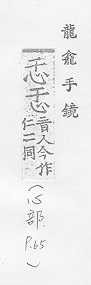 龍龕手鏡
忎音人今作
仁二同
(心部
P.65)